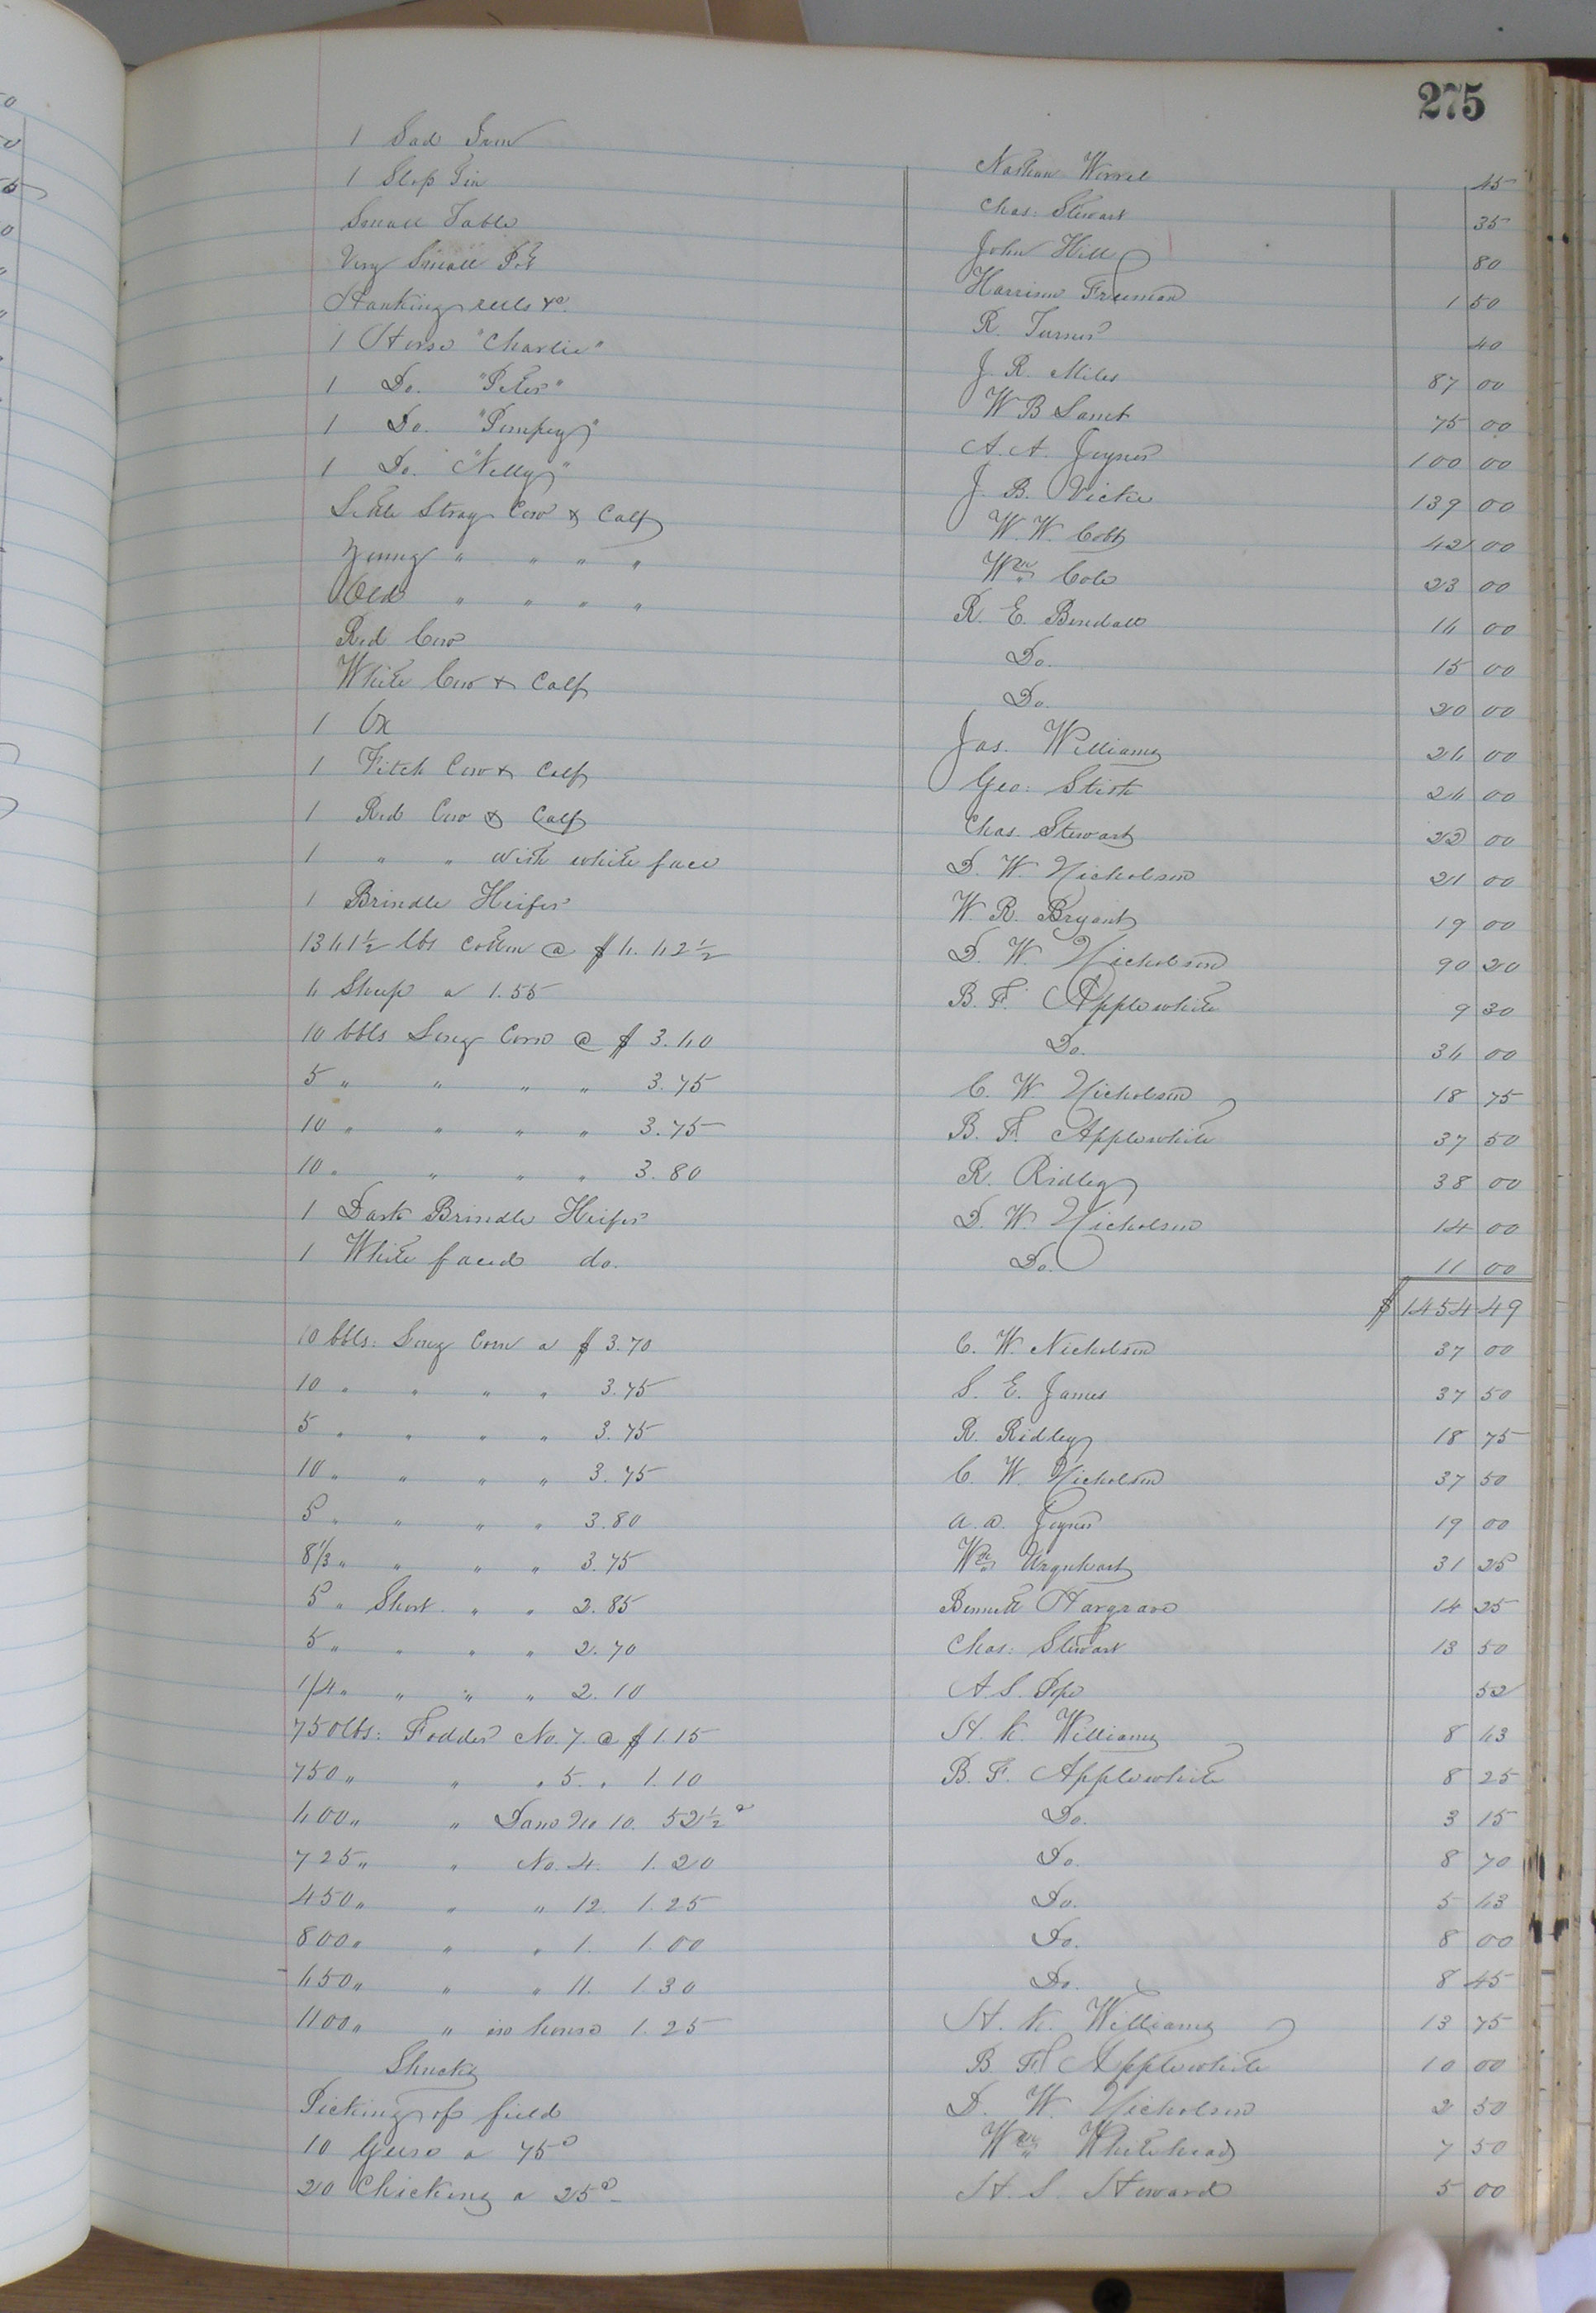 275
1 Sad Iron Nathan Worrel 45
1 Slop Tin Chas: Stewart 35
Small Table John Hill 80
Very Small Pot Harrison Freeman 1 50
Hanking reels &c. R. Turner 40
1 Horse "Charlie" J. R. Miles 87 00
1 Do. "Peter" W B Lamb 75 00
1 Do. "Pompey" A. A. Joyner 100 00
1 Do. "Nelly" J. B. Vick 139 00
Little Stray Cow & Calf W. W. Cobb 42 00
Young " " " " Wm Cole 23 00
Old " " " " R. E. Bendall 16 00
Red Cow Do. 15 00
White Cow & Calf Do. 20 00
1 Ox Jas. Williams 26 00
1 Fitch Cow & Calf Geo: Stith 26 00
1 Red Cow & Calf Chas. Stewart 22 00
1 " " with white face D. W Nicholson 21 00
1 Brindle Heifer W. R. Bryant 19 00
1361 1/2 lbs Cotton @ $6.62 1/2 D. W. Nicholson 90 20
6 Sheep a 1.55 B. F. Applewhite 9 30
10 bbls Long Corn @ $3.60 Do. 36 00
5 " " " " 3.75 C. W Nicholson 18 75
10 " " " " 3.75 B. F. Applewhite 37 50
10 " " " " 3.80 R. Ridley 38 00
1 Dark Brindle Heifer D. W. Nicholson 14 00
1 White faced do. Do. 11 00
$1454 49
10 bbls: Long Corn a $3.70 C. W. Nicholson 37 00
10 " " " " 3.75 S. E. James 37 50
5 " " " " 3.75 R. Ridley 18 75
10 " " " " 3.75 C. W Nicholson 37 50
5 " " " " 3.80 A. A. Joyner 19 00
8 1/3 " " " " 3.75 Wm Urquhart 31 25
5 " Short " " 2.85 Bennett Hargrave 14 25
5 " " " " 2.70 Chas: Stewart 13 50
1/4 " " " " 2.10 A S. Pope 52
750 lbs: Fodder No. 7. @ $1.15 H. K. Williams 8 63
750 " " " 5. " 1.10 B. F. Applewhite 8 25
600 " " Dam No 10. 52 1/2 c Do. 3 15
725 " " No. 4. 1.20 Do. 8 70
450 " " " 12. 1.25 Do. 5 63
800 " " " 1. 1.00 Do. 8 00
650 " " " 11. 1.30 Do. 8 45
1100 " " in house 1.25 H. K. Williams 13 75
Shucks B F. Applewhite 10 00
Picking of field D. W. Nicholson 2 50
10 Geese a 75c Wm Whitehead 7 50
20 Chickens a 25c H. S. Howard 5 00